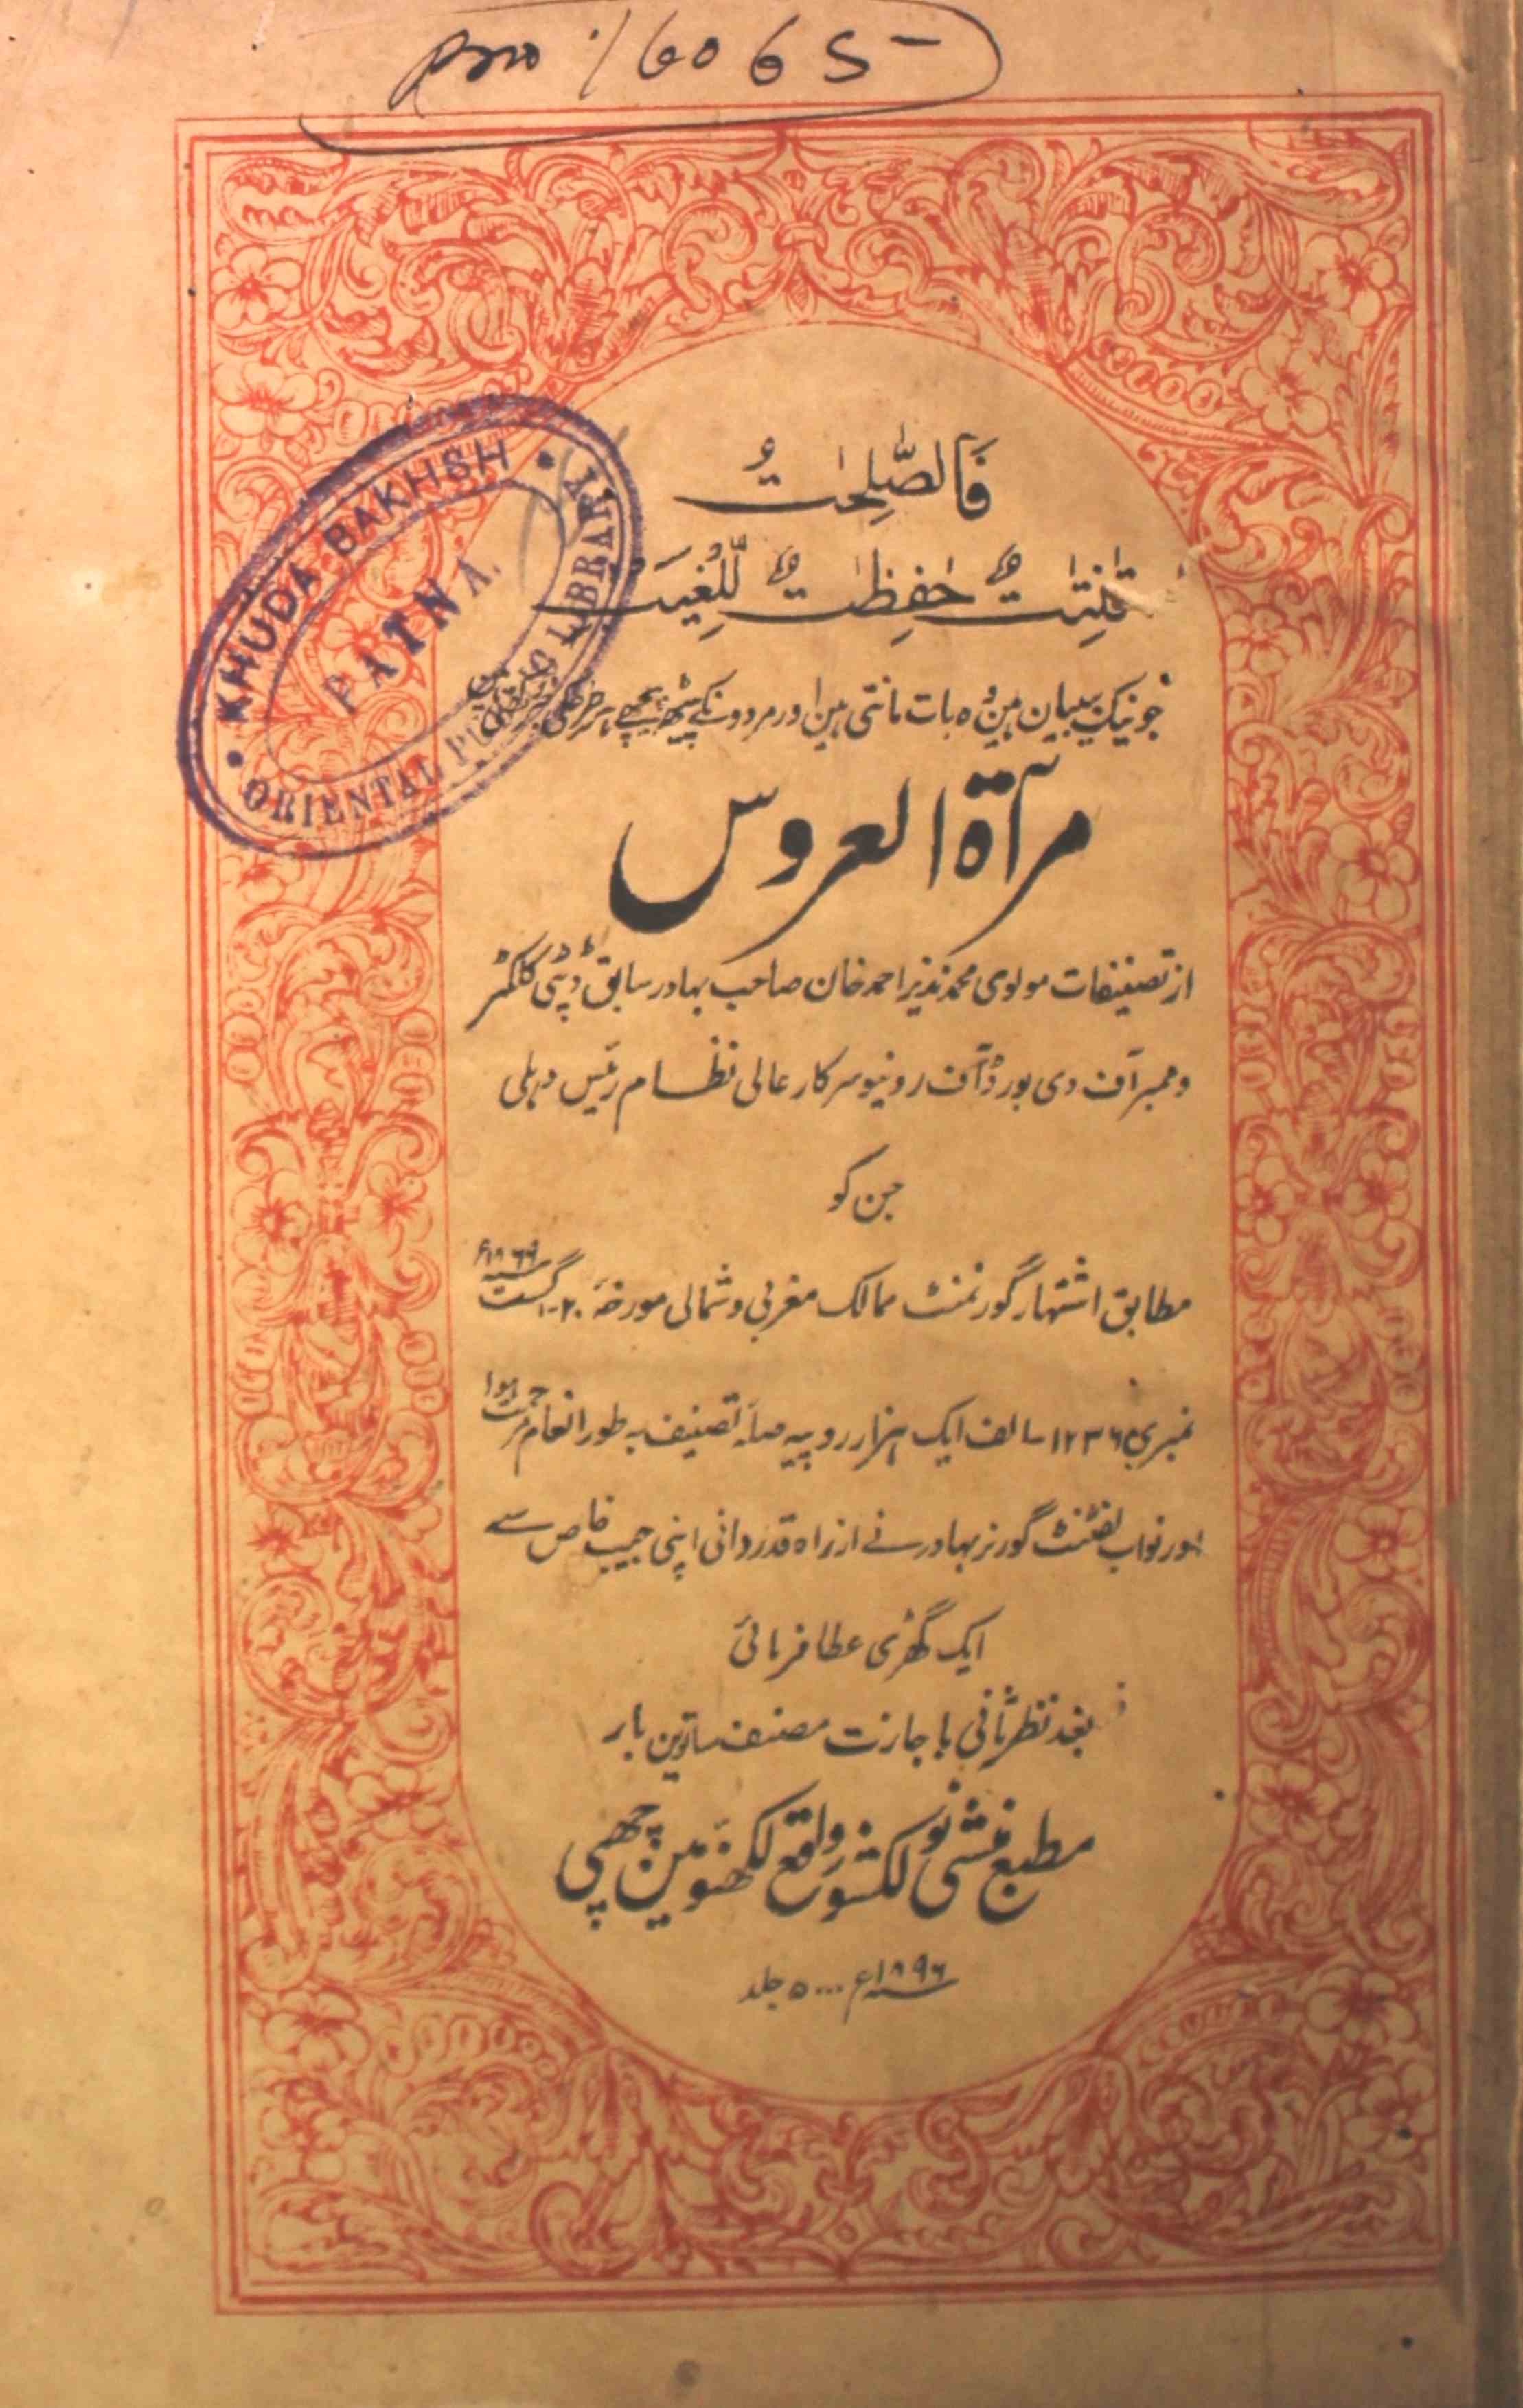 16065
KHUDA BAKHSH
ORIENTAL PUBLIC LIBRARY
PATNA.
فَالصّٰلِحٰتُ
قٰنِتٰتٌ حٰفِظٰتٌ لِّلْغَيْبِ
جو نیک بیبیان ہین وہ بات مانتی ہین اور مردونکے پیٹھ پیچھے ہر طرحکی
مرآۃ العروس
از تصنیفات مولوی محمد نذیر احمد خان صاحب بہادر سابق ڈپٹی کلکٹر
و ممبر آف دی بورڈ آف رونیو سرکار عالی نظام رئیس دہلی
جن کو
مطابق اشتہار گورنمنٹ ممالک مغربی و شمالی مورخہ ۲۰- اگست ۱۸۶۹ء
نمبری ۱۲۳۶ الف ایک ہزار روپیہ صلۂ تصنیف بہ طور انعام مرحمت ہوا
اور نواب لفٹنٹ گورنر بہادر نے ازراہ قدردانی اپنی جیب خاص سے
ایک گھڑی عطا فرمائی
بعد نظر ثانی باجازت مصنف ساتوین بار
مطبع منشی نولکشور واقع لکھنؤ مین چھپی
۱۸۹۶ء ۵۰۰۰ جلد